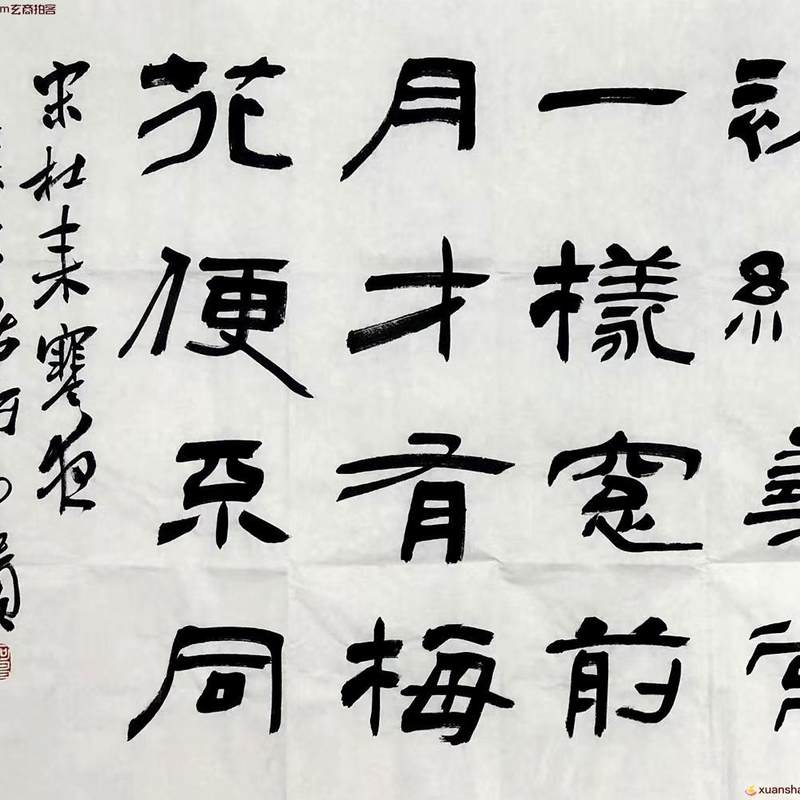 m玄商拍客
初紅尋常
一樣窗前
月才有梅
花便不同
宋杜耒寒夜
xuansha